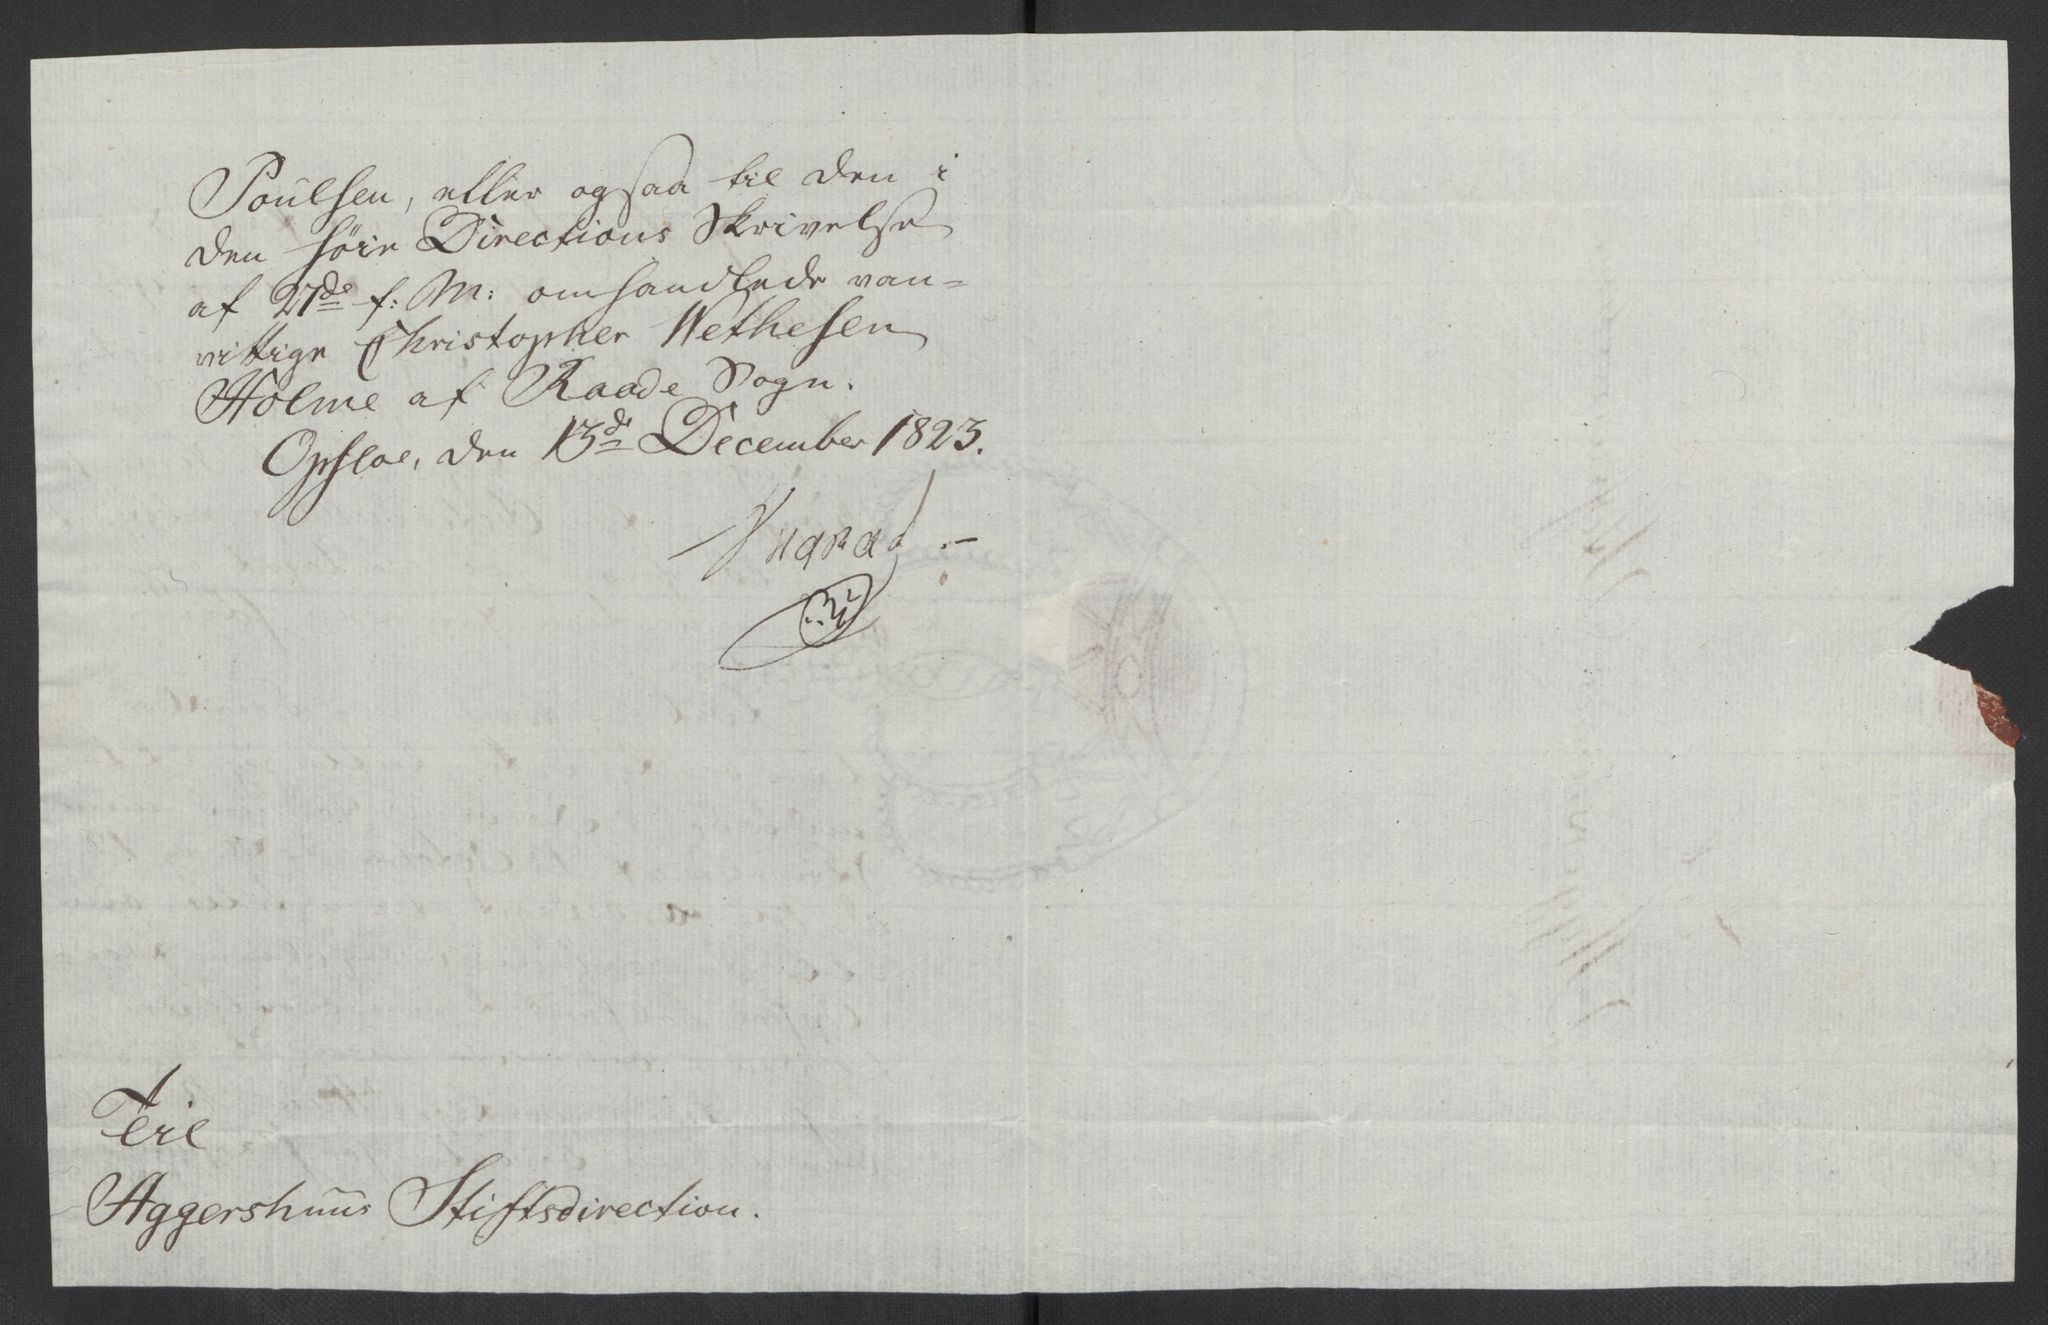 Poulsen, eller ogsaa til den i
den høie Directions Skrivelse
af 27de f: M: omhandlede van=
vittige Christopher Nethesen
Holme af Raade Sogn.
Opsloe, den 13de December 1823.
Teil
Aggershuus Stiftsdirection.